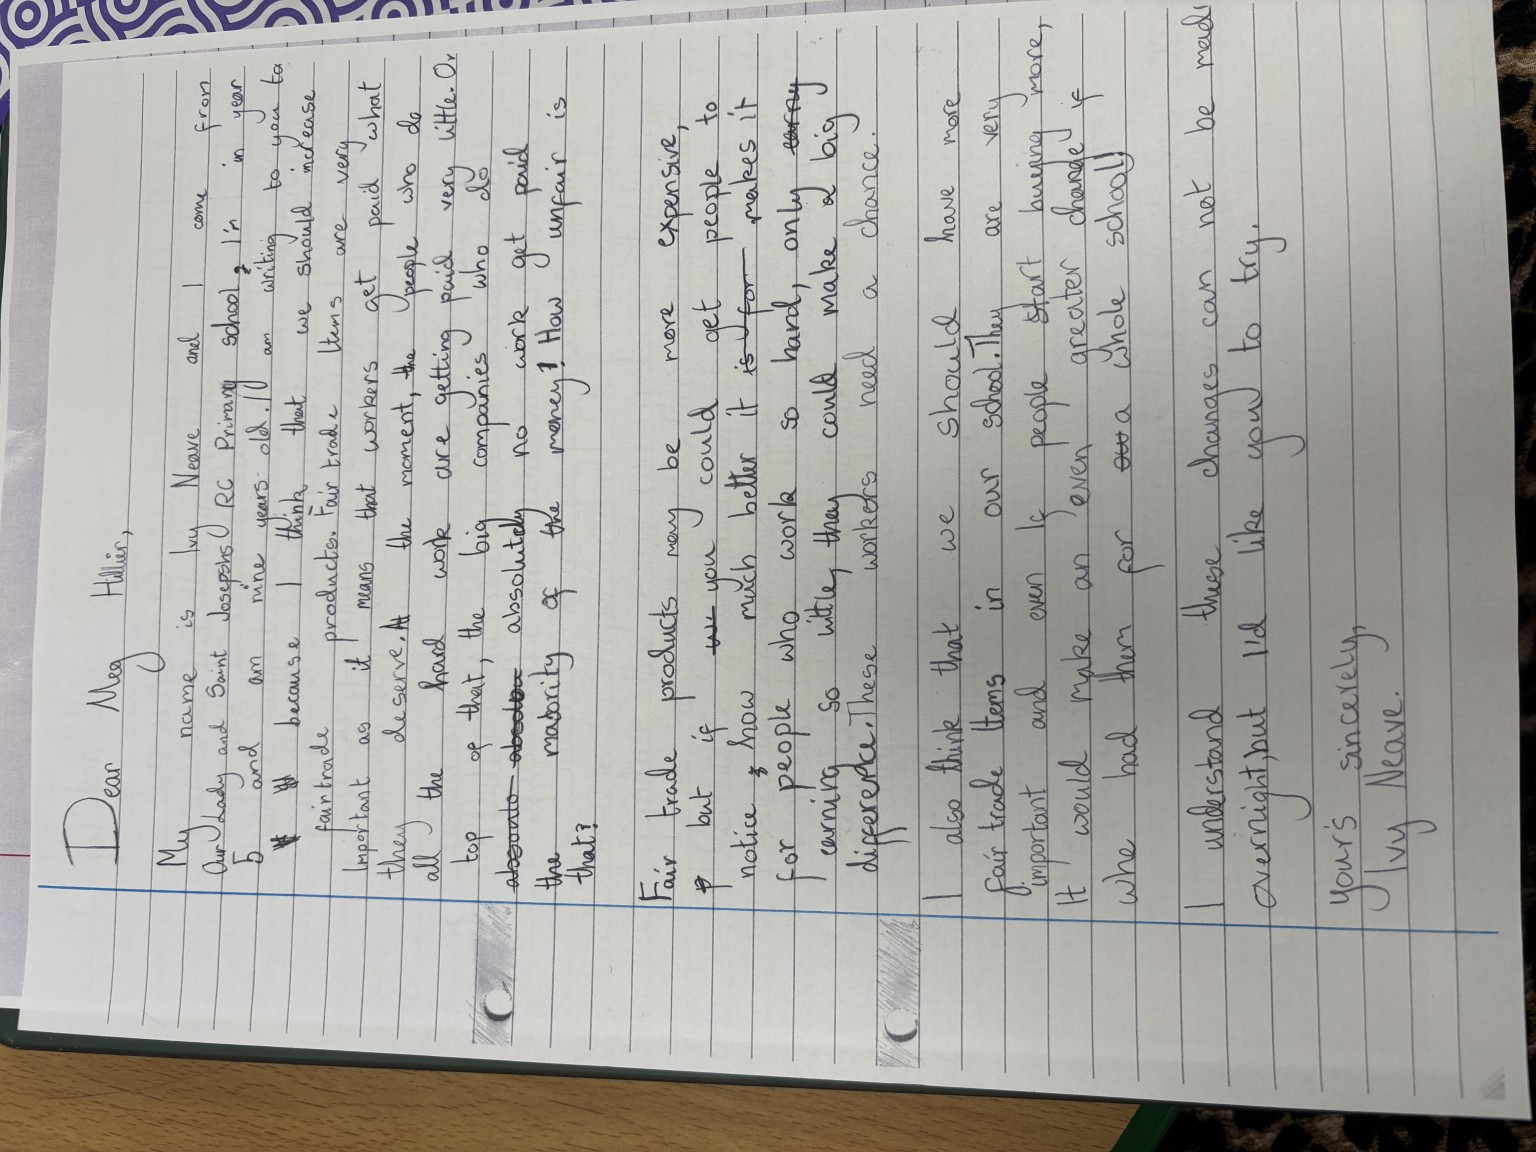 Dear Meg Hillier,
My name is Ivy Neave and I come from
Our Lady and Saint Josephs RC Primary school. I'm in year
5 and am nine years old. I am writing to you to
because I think that we should increase
fairtrade products. Fair trade Items are very
Important as it means that workers get paid what
they deserve. At the moment, the people who do
all the hard work are getting paid very little. On
top of that, the big companies who do
absolutely no work get paid
the majority of the money! How unfair is
that?
Fair trade products may be more expensive,
but if you could get people to
notice how much better it is for makes it
for people who work so hard, only earny
earning so little, they could make a big
difference. These workers need a chance.
I also think that we should have more
fair trade Items in our school. They are very
important and even if people start buying more,
It would make an even greater change if
whe had them for a whole school!
I understand these changes can not be made
overnight, but I'd like you to try.
your's sincerely,
Ivy Neave.